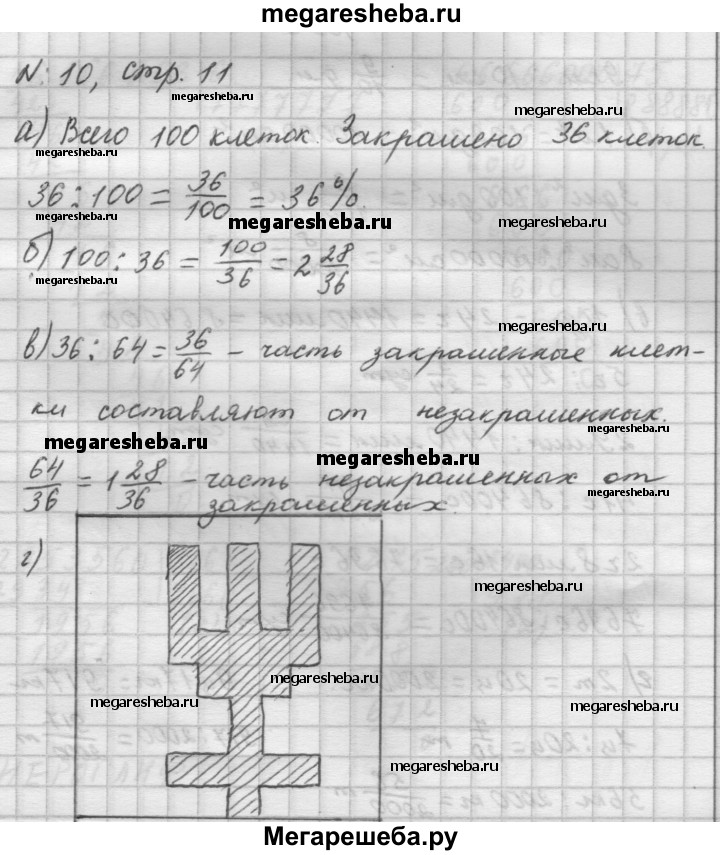 megaresheba.ru
N: 10, стр. 11
megaresheba.ru
megaresheba.ru
а) Всего 100 клеток. Закрашено 36 клеток.
megaresheba.ru
36 : 100 = 36/100 = 36%.
megaresheba.ru
megaresheba.ru
megaresheba.ru
б) 100 : 36 = 100/36 = 2 28/36
megaresheba.ru
megaresheba.ru
в) 36 : 64 = 36/64 - часть закрашенные клет-
ки составляют от незакрашенных.
megaresheba.ru
megaresheba.ru
megaresheba.ru
64/36 = 1 28/36 - часть незакрашенных от
megaresheba.ru
закрашенных.
г)
megaresheba.ru
megaresheba.ru
megaresheba.ru
megaresheba.ru
megaresheba.ru
Мегарешеба.ру